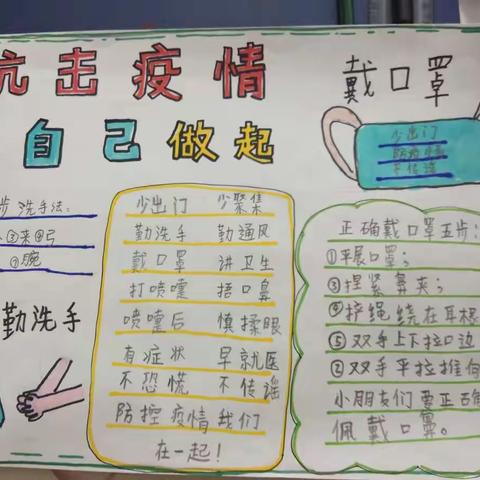 抗击疫情
自己做起
戴口罩
少出门
防疫情
不传谣
步洗手法:
③夹④弓
⑦腕
勤洗手
少出门 少聚集
勤洗手 勤通风
戴口罩 讲卫生
打喷嚏 捂口鼻
喷嚏后 慎揉眼
有症状 早就医
不恐慌 不传谣
防控疫情我们
在一起!
正确戴口罩五步:
①平展口罩;
③捏紧鼻夹;
护绳绕在耳根
⑤双手上下拉口边
②双手平拉推向
小朋友们要正确
佩戴口罩。